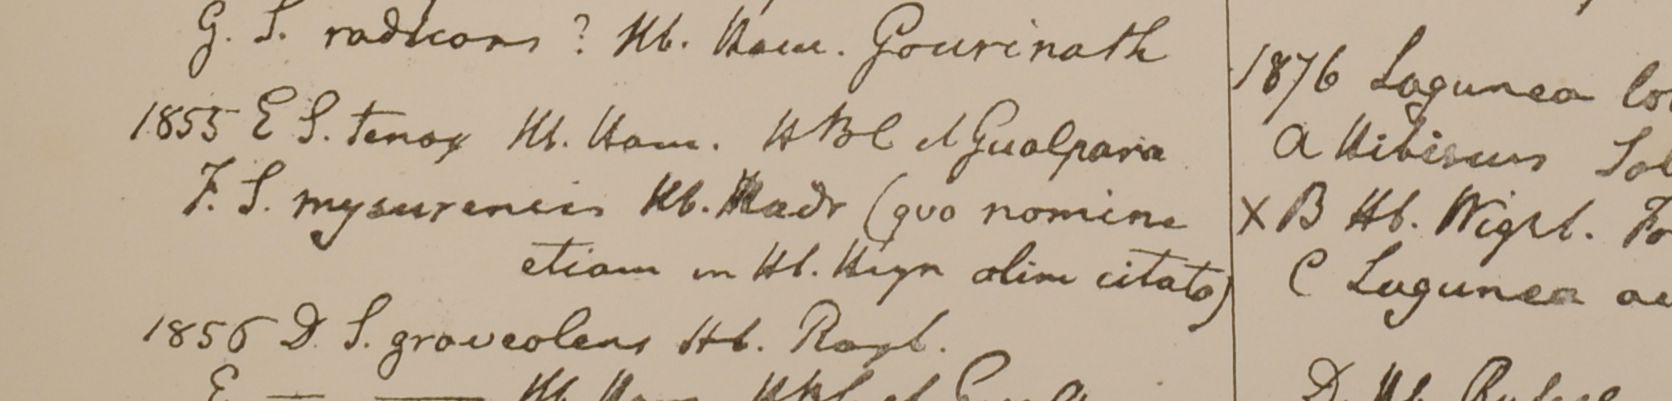 G. S. radicans ? Hb. Ham. Gourinath
1855 E S. tenax Hb. Ham. HBC et Gualpara
F. S. mysurensis Hb. Madr (quo nomine
etiam in Hb. Heyn olim citata)
1856 D S. graveolens Hb. Roxb.
E — — Hb. Ham. HBC et
1876 Lagunea
A Hibiscus
X B Hb. Wight.
C Lagunea
D. Hb.